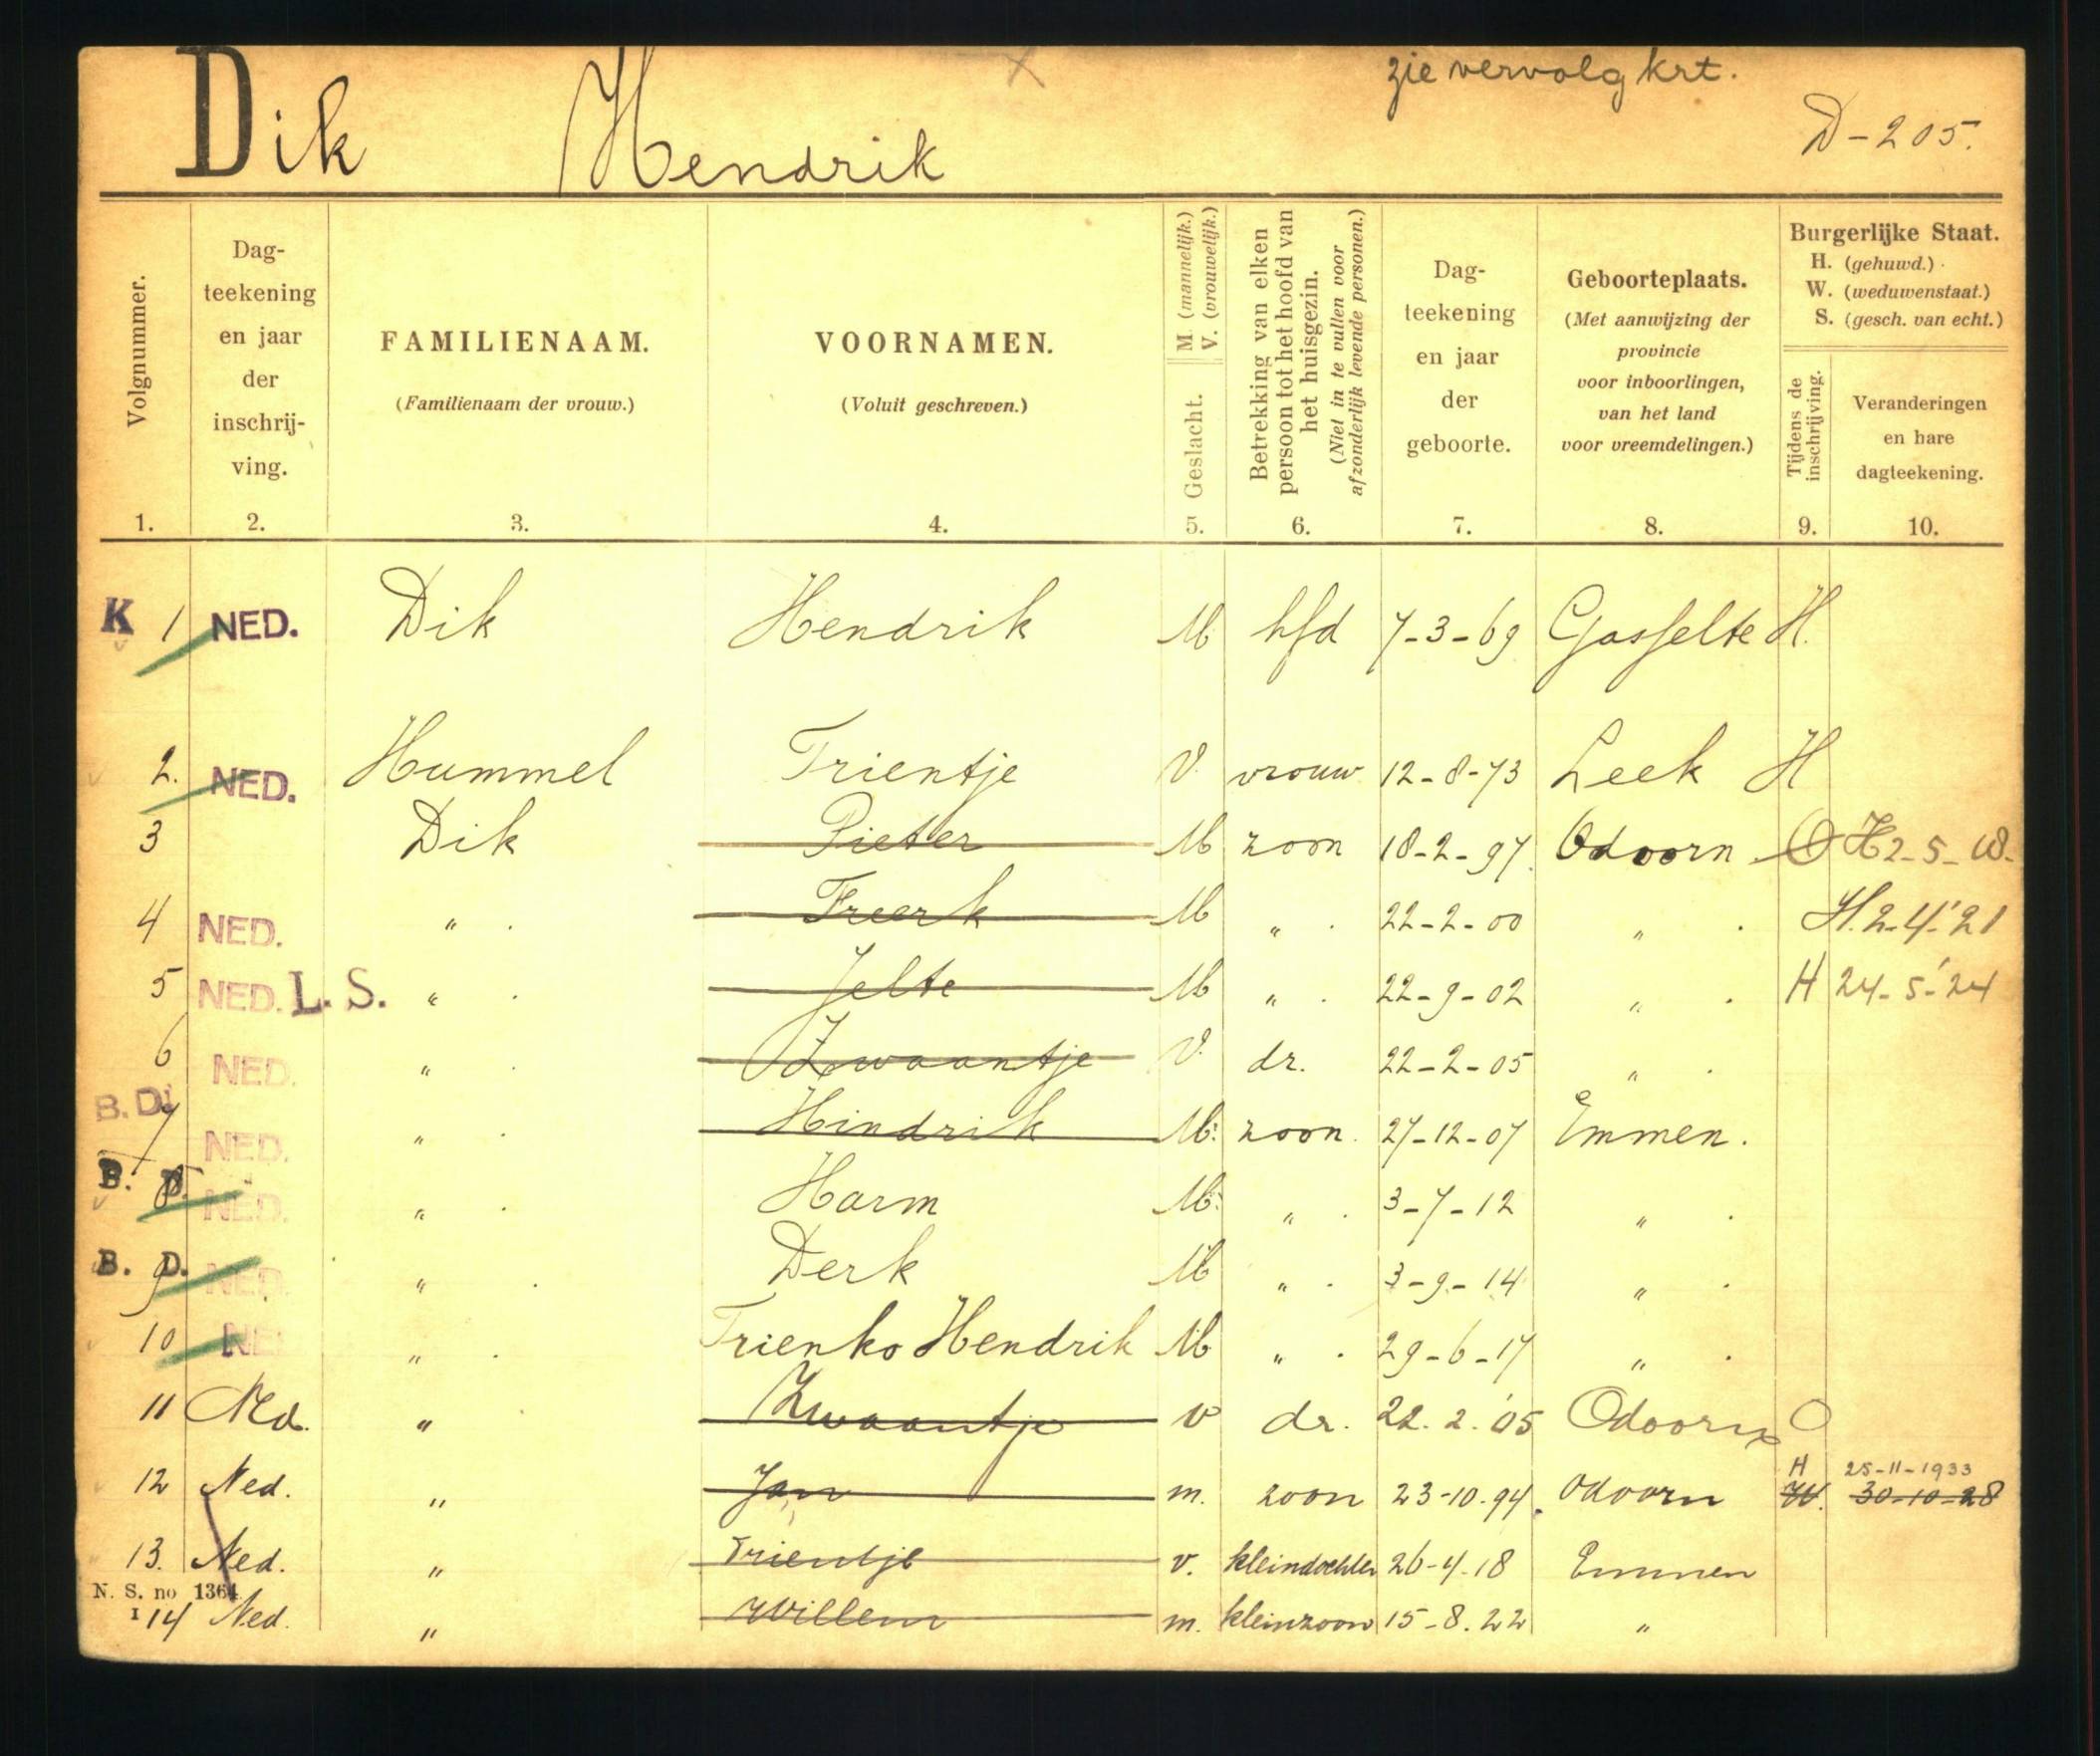 zie vervolg krt.
Dik Hendrik D-205.
Volgnummer.
1.
Dag-
teekening
en jaar
der
inschrij-
ving.
2.
FAMILIENAAM.
(Familienaam der vrouw.)
3.
VOORNAMEN.
(Voluit geschreven.)
4.
Geslacht. M. (mannelijk.)
V. (vrouwelijk.)
5.
Betrekking van elken
persoon tot het hoofd van
het huisgezin.
(Niet in te vullen voor
afzonderlijk levende personen.)
6.
Dag-
teekening
en jaar
der
geboorte.
7.
Geboorteplaats.
(Met aanwijzing der
provincie
voor inboorlingen,
van het land
voor vreemdelingen.)
8.
Burgerlijke Staat.
H. (gehuwd.)
W. (weduwenstaat.)
S. (gesch. van echt.)
Tijdens de
inschrijving.
9.
Veranderingen
en hare
dagteekening.
10.
K 1 NED. Dik Hendrik M hfd 7-3-69 Gasselte H.
2. NED. Hummel Trientje V. vrouw 12-8-73 Leek H
3 Dik Pieter M zoon 18-2-97. Odoorn O H 2-5-18.
4 NED. " Freerk M " 22-2-00 " H. 2-4-'21
5 NED. L. S. " Jelte M " 22-9-02 " H 24-5-'24
6 NED. " Zwaantje V. dr. 22-2-05 "
B. D. 7 NED. " Hindrik M. zoon. 27-12-07 Emmen.
B. D. 8 NED. " Harm M. " 3-7-12 "
B. D. 9 NED. " Derk M " 3-9-14 "
10 NE " Trienko Hendrik M " 29-6-17 "
11 Ned. " Zwaantje v dr. 22.2.'05 Odoorn O
H 25-11-1933
12 Ned. " Jan m. zoon 23-10-94. Odoorn W. 30-10-28
13. Ned. " Trientje v. kleindochter 26-4-18 Emmen
N. S. no 1364
I 14 Ned. " Willem m. kleinzoon 15-8.22 "